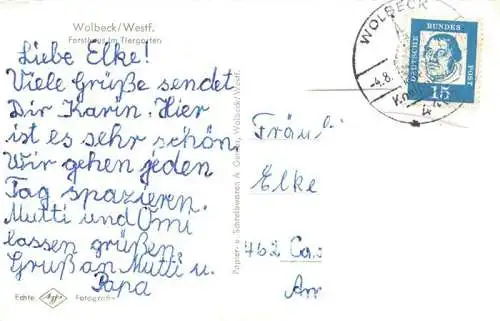 Wolbeck/Westf.
Forsthaus im Tiergarten
Liebe Elke!
Viele Grüße sendet
Dir Karin. Hier
ist es sehr schön.
Wir gehen jeden
Tag spazieren.
Mutti und Omi
lassen grüßen.
Gruß an Mutti u.
Papa
Echte Agfa Fotografie
Papier- u. Schreibwaren A. Wolbeck/Westf.
WOLBECK
-4.8.
DEUTSCHE
BUNDES
POST
15
Fräul
Elke
462 Ca